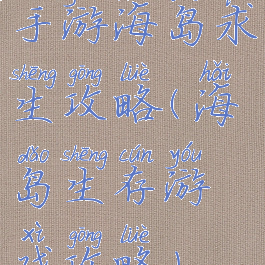 手游海岛求
shēng gōng lüè hǎi
生攻略(海
dǎo shēng cún yóu
岛生存游
xì gōng lüè
戏攻略)